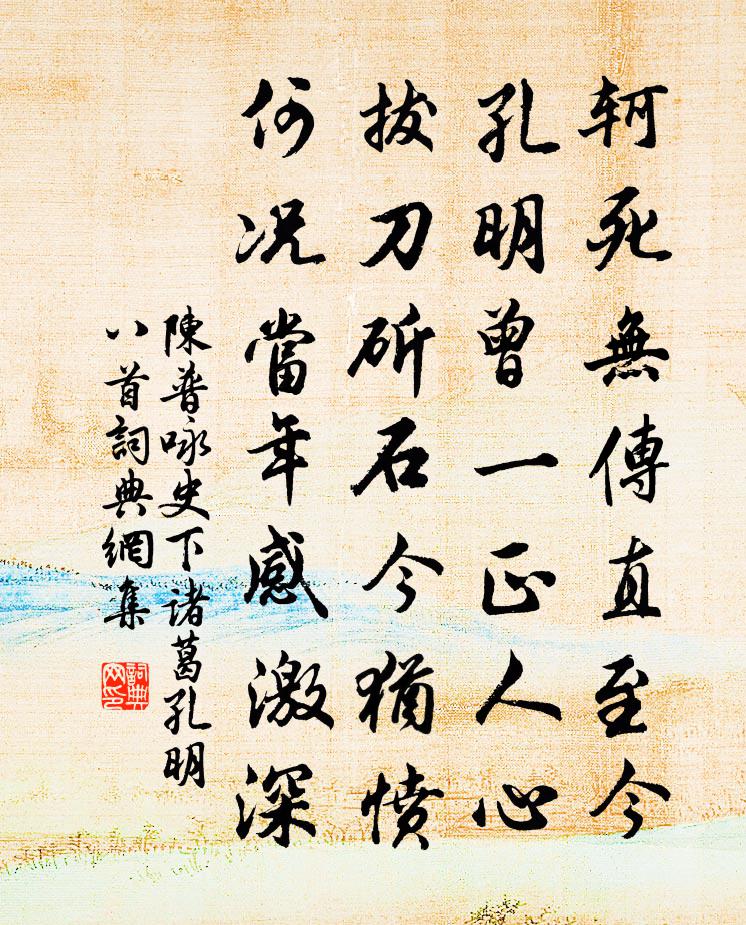 軻死無傳直至今
孔明曾一正人心
拔刀斫石今猶憤
何況當年感激深
陳普咏史下諸葛孔明
八首詞典網集
詞典
网印